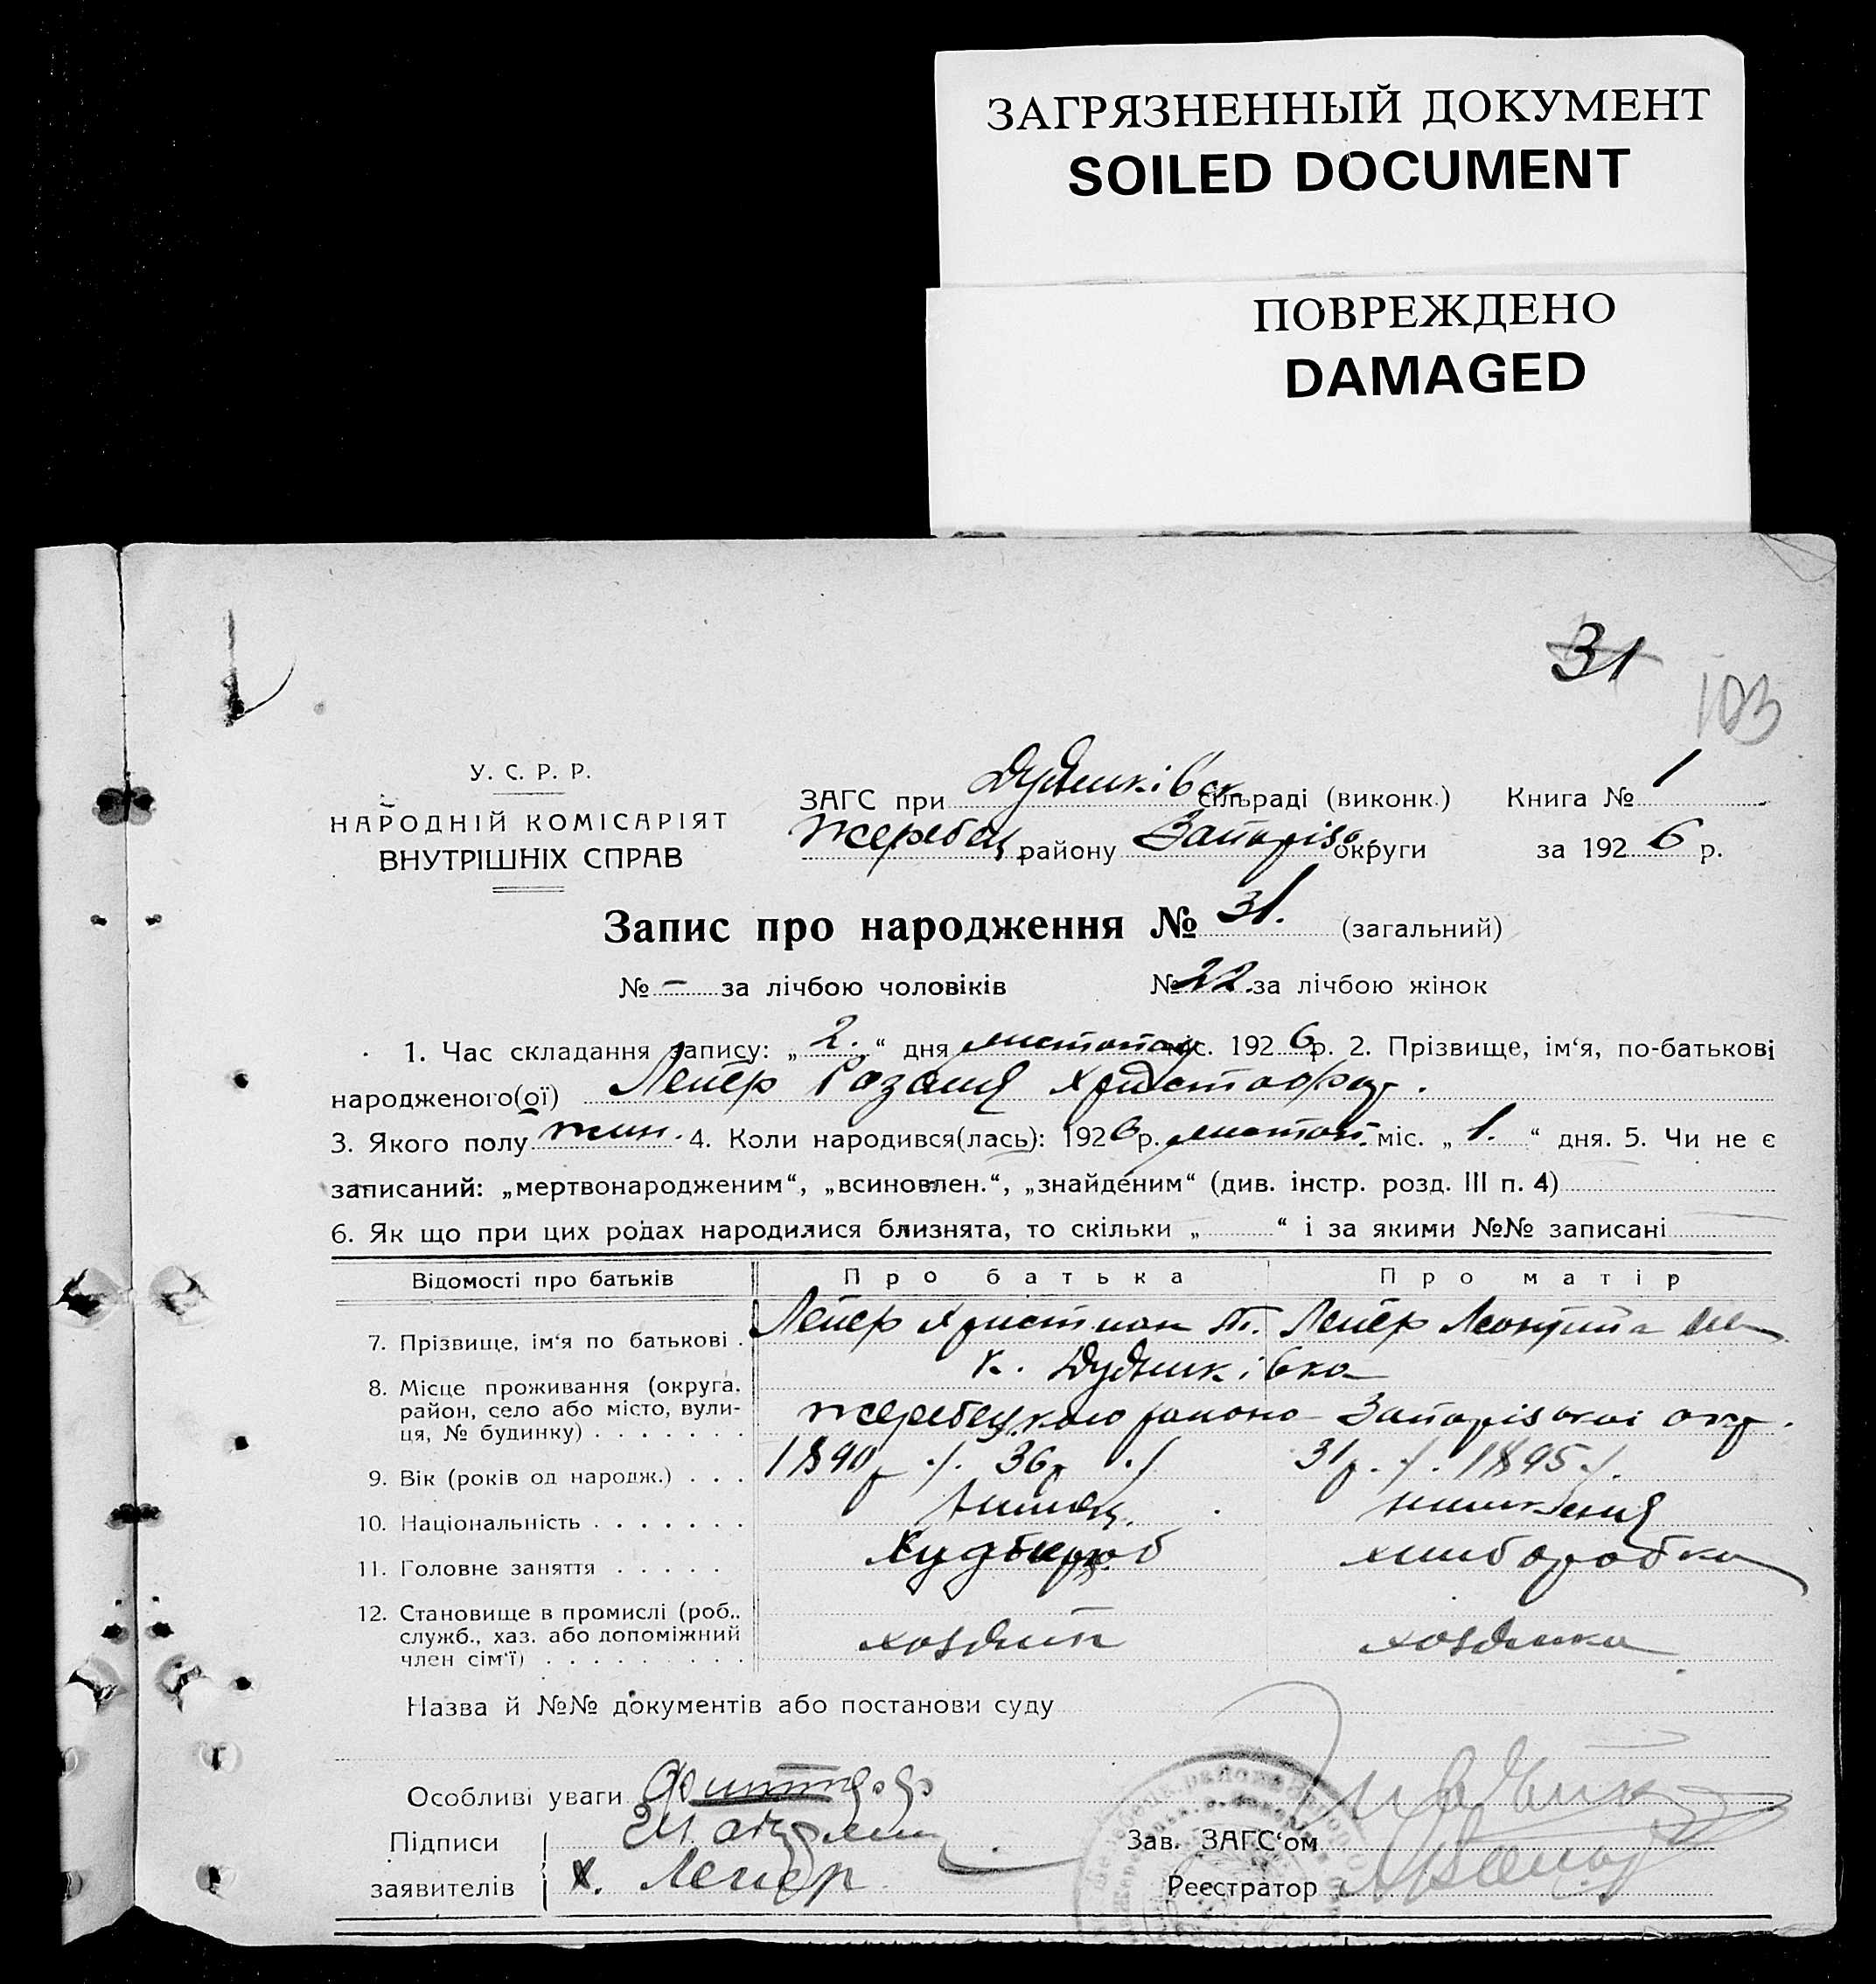 ЗАГРЯЗНЕННЫЙ ДОКУМЕНТ
SOILED DOCUMENT
ПОВРЕЖДЕНО
DAMAGED
31
103
У. С. Р. Р.
НАРОДНІЙ КОМІСАРІЯТ
ВНУТРІШНІХ СПРАВ
ЗАГС при Дудниківск сільраді (виконк.) Книга № 1
Жеребец району Запоріз округи за 1926 р.
Запис про народження № 31. (загальний)
№ – за лічбою чоловіків № 22. за лічбою жінок
1. Час складання запису: „ 2. “ дня листопад міс. 1926 р. 2. Прізвище, ім‘я, по-батькові
народженого(ої) Лейер Розалія
3. Якого полу жин. 4. Коли народився(лась): 1926 р. листоп. міс. „ 1. “ дня. 5. Чи не є
записаний: „мертвонародженим“, „всиновлен.“, „знайденим“ (див. інстр. розд. III п. 4)
6. Як що при цих родах народилися близнята, то скільки „ “ і за якими №№ записані
Відомості про батьків Про батька Про матір
7. Прізвище, ім‘я по батькові . Лейер Христиан Лейер
8. Місце проживання (округа, к. Дудниківка
район, село або місто, вули- Жеребецкого району Запорізької окр.
ця, № будинку) . . . . . . .
9. Вік (років од народж.) . . . 1890 р. 36 р. 31 р. 1895
10. Національність . . . . . . . німець
11. Головне заняття . . . . . хлиборобка
12. Становище в промислі (роб.,
служб., хаз. або допоміжний хозяин хозяйка
член сім‘ї) . . . . . . . . .
Назва й №№ документів або постанови суду
Особливі уваги
Підписи Зав. ЗАГС‘ом
заявителів Х. Лейер Реєстратор